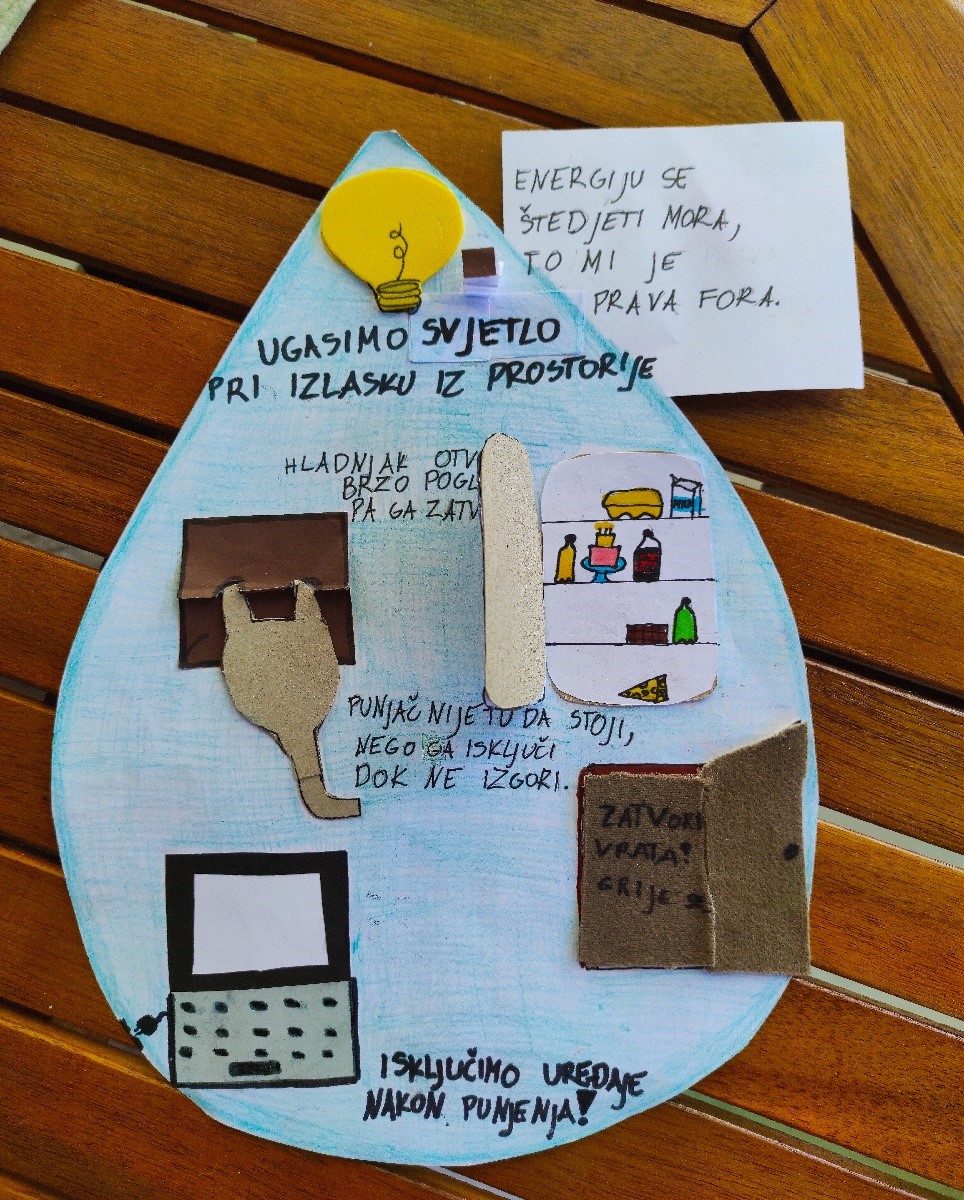 ENERGIJU SE
ŠTEDJETI MORA,
TO MI JE
PRAVA FORA.
UGASIMO SVJETLO
PRI IZLASKU IZ PROSTORIJE
HLADNJAK OTV
BRZO POGL
PA GA ZATV
MILK
PUNJAČ NIJE TU DA STOJI,
NEGO GA ISKLJUČI
DOK NE IZGORI.
ZATVORI
VRATA!
GRIJE SE
ISKLJUČIMO UREĐAJE
NAKON PUNJENJA!